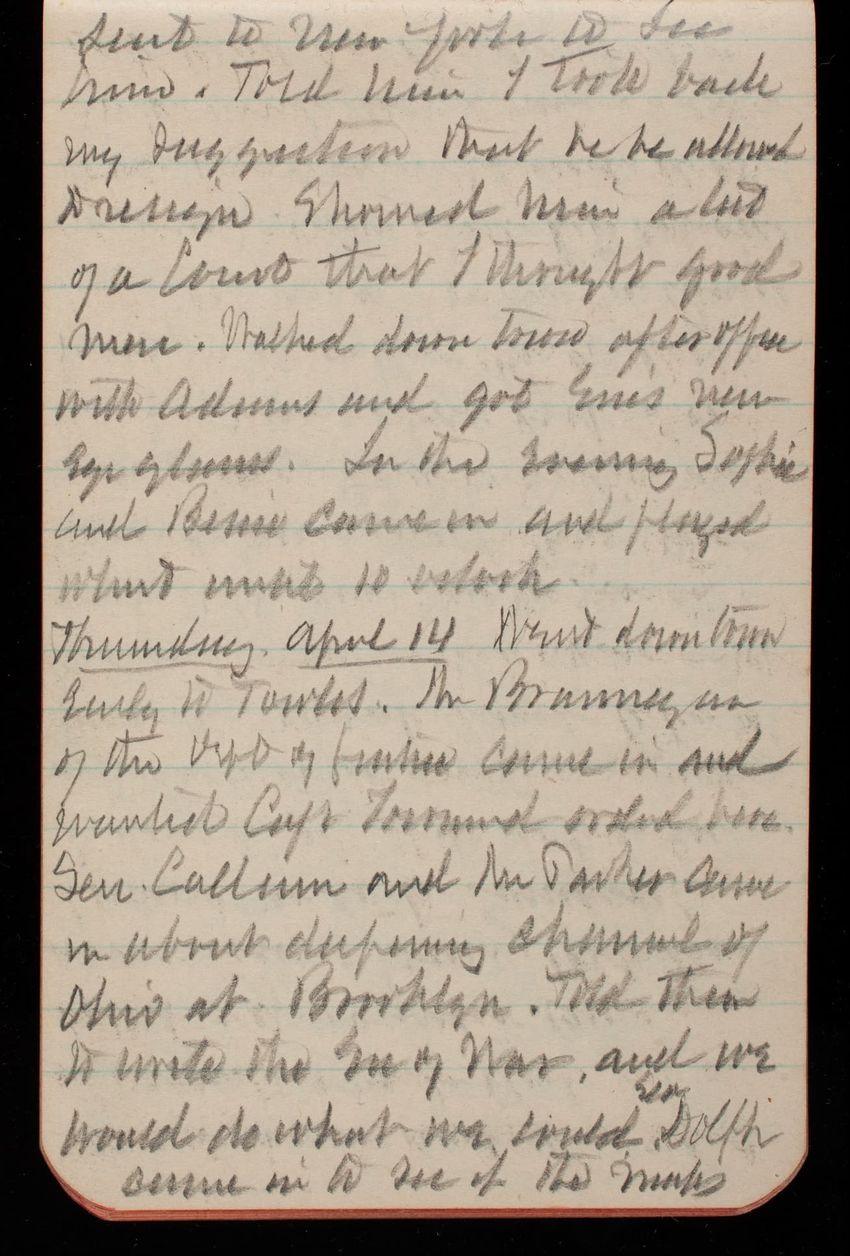 sent to New York to see
him. Told him I took back
my suggestion that he be allowed
to resign. Showed him a list
of a Court that I thought good
men. Walked down town after office
with Adams and got Evie's new
Eye glasses. In the evening Sophie
and Bessie came in and played
whist until 10 oclock.
Thursday. April 14 Went down town
Early to Towles. Mr Brannegan
of the Dept of Justice came in and
wanted Capt ordered here.
Sen. Cullum and Mr Parker came
in about deepening channel of
Ohio at Brooklyn. Told them
to write the Sec of War, and we
would do what we could. Sen Dolph
came in to see if the maps